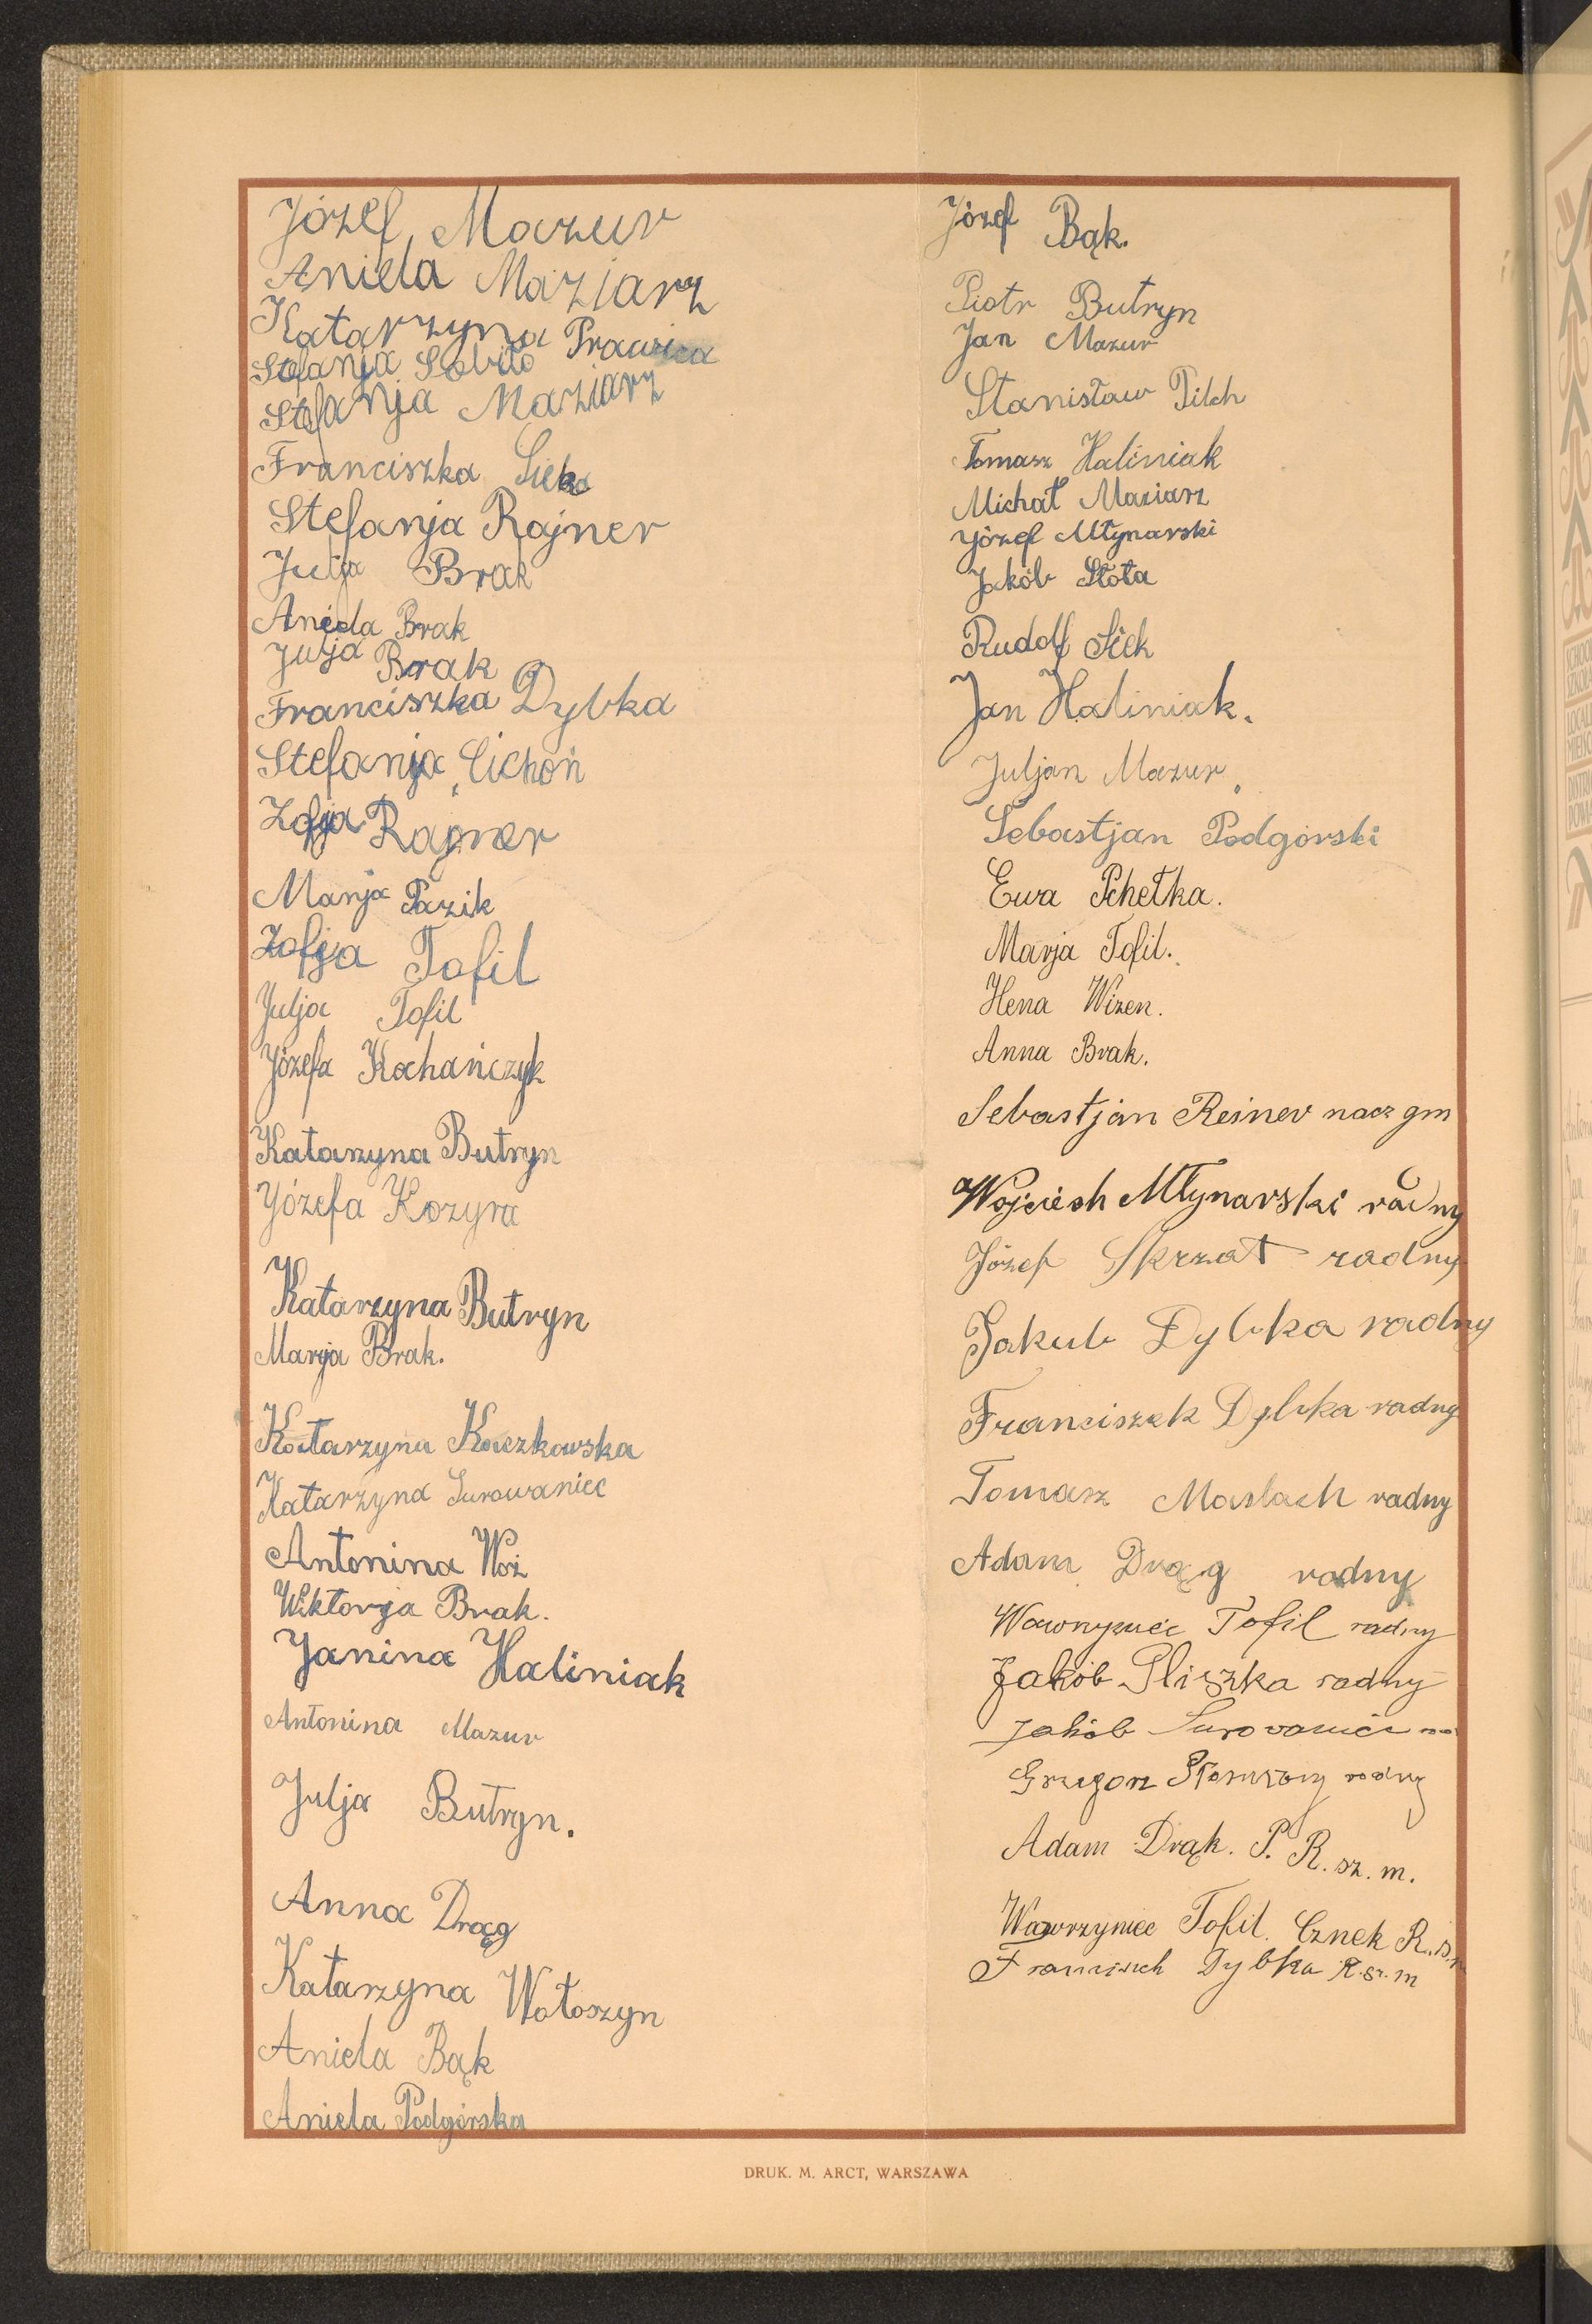 Józef Mazur
Aniela Maziarz
Katarzyna Prawica
Stefanja Sobiło
Stefanja Maziarz
Franciszka
Stefanja Rajner
Julja Brak
Aniela Brak
Julja Brak
Franciszka Dybka
Stefanja Cichoń
Zofja Rajner
Marja Pazik
Zofja Tofil
Julja Tofil
Józefa Kochańczyk
Katarzyna Butryn
Józefa Kozyra
Katarzyna Butryn
Marja Brak.
Katarzyna Kaczkowska
Katarzyna Surowaniec
Antonina Woź
Wiktorja Brak.
Janina Haliniak
Antonina Mazur
Julja Butryn.
Anna Drąg
Katarzyna Wołoszyn
Aniela Bąk
Aniela Podgórska
Józef Bąk.
Piotr Butryn
Jan Mazur
Stanisław Pilch
Tomasz Haliniak
Michał Maziarz
Józef Młynarski
Jakób Słota
Rudolf Siek
Jan Haliniak.
Juljan Mazur.
Sebastjan Podgórski
Ewa Pchełka.
Marja Tofil.
Hena Wizen.
Anna Brak.
Sebastjan Reiner nacz gm
Wojciech Młynarski radny
Józef Skrzat radny
Jakub Dybka radny
Franciszek Dybka radny
Tomasz Maslach radny
Adam Drąg radny
Wawrzyniec Tofil radny
Jakób Pliszka radny
Jakób Surowaniec
Grzegorz radny
Adam Drąk. P. R. sz. m.
Wawrzyniec Tofil. Cznek R. s. m
Franciszek Dybka R. sz. m
DRUK. M. ARCT, WARSZAWA